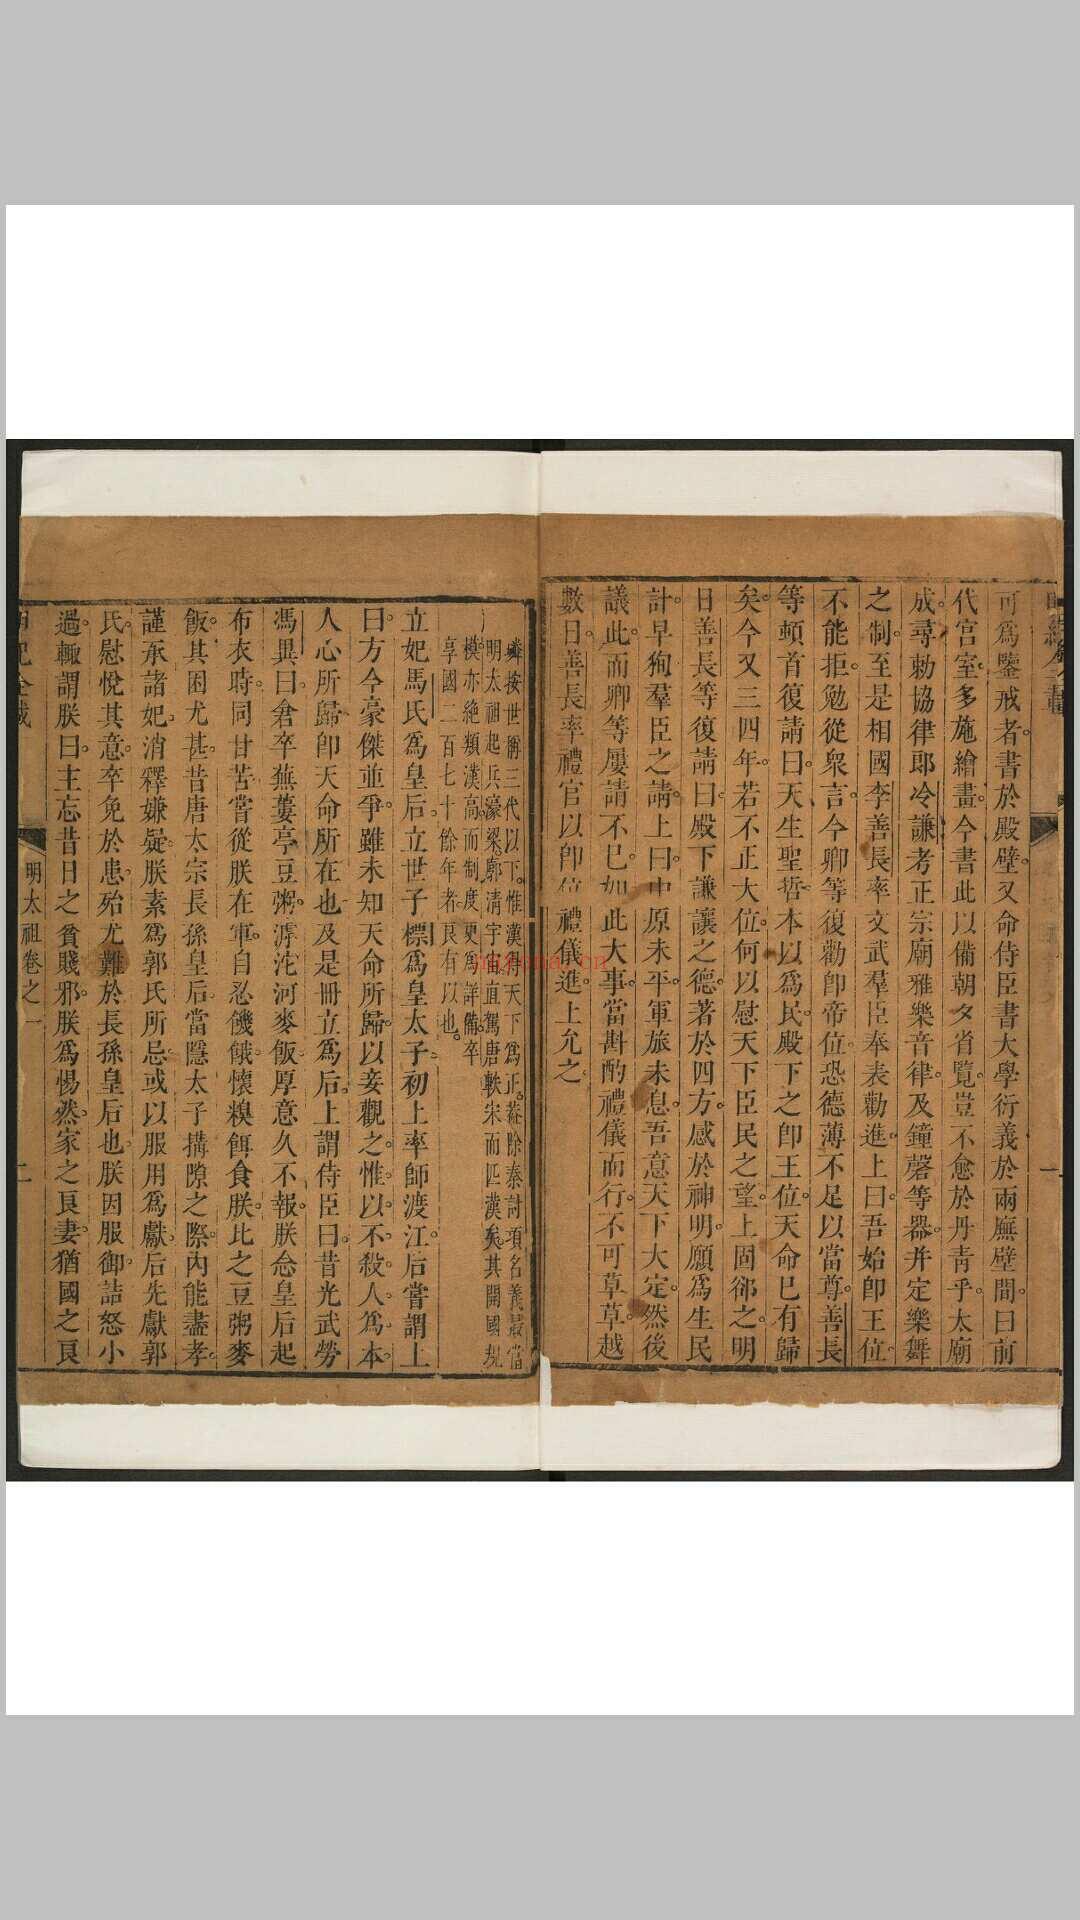 可爲鑒戒者書於殿壁又命侍臣書大學衍義於兩廡壁間曰前
代宮室多施繪畫今書此以備朝夕省覽豈不愈於丹青乎太廟
成尋勅協律郎冷謙考正宗廟雅樂音律及鐘磬等器并定樂舞
之制至是相國李善長率文武羣臣奉表勸進上曰吾始卽王位
不能拒勉從衆言今卿等復勸卽帝位恐德薄不足以當尊善長
等頓首復請曰天生聖哲本以爲民殿下之卽王位天命已有歸
矣今又三四年若不正大位何以慰天下臣民之望上固郤之明
日善長等復請曰殿下謙讓之德著於四方感於神明願爲生民
計早狥羣臣之請上曰中原未平軍旅未息吾意天下大定然後
議此而卿等屢請不已如此大事當斟酌禮儀而行不可草草越
數日善長率禮官以卽位禮儀進上允之
一
按世儕三代以下惟漢得天下爲正葢除秦討項名義最當
明太祖起兵濠梁廓清宇宙直駕唐軼宋而匹漢矣其開國規
模亦絶類漢高而制度更爲詳備卒
享國二百七十餘年者良有以也
立妃馬氏爲皇后立世子標爲皇太子初上率師渡江后嘗謂上
曰方今豪傑並爭雖未知天命所歸以妾觀之惟以不殺人爲本
人心所歸卽天命所在也及是冊立爲后上謂侍臣曰昔光武勞
馮異曰倉卒蕪蔞亭豆粥滹沱河麥飯厚意久不報朕念皇后起
布衣時同甘苦嘗從朕在軍自忍饑餓懷糗餌食朕比之豆粥麥
飯其困尤甚昔唐太宗長孫皇后當隱太子搆隙之際內能盡孝
謹承諸妃消釋嫌疑朕素爲郭氏所忌或以服用爲獻后先獻郭
氏慰悅其意卒免於患殆尤難於長孫皇后也朕因服御詰怒小
過輒謂朕曰主忘昔日之貧賤邪朕爲惕然家之良妻猶國之良
明太祖卷之一
二